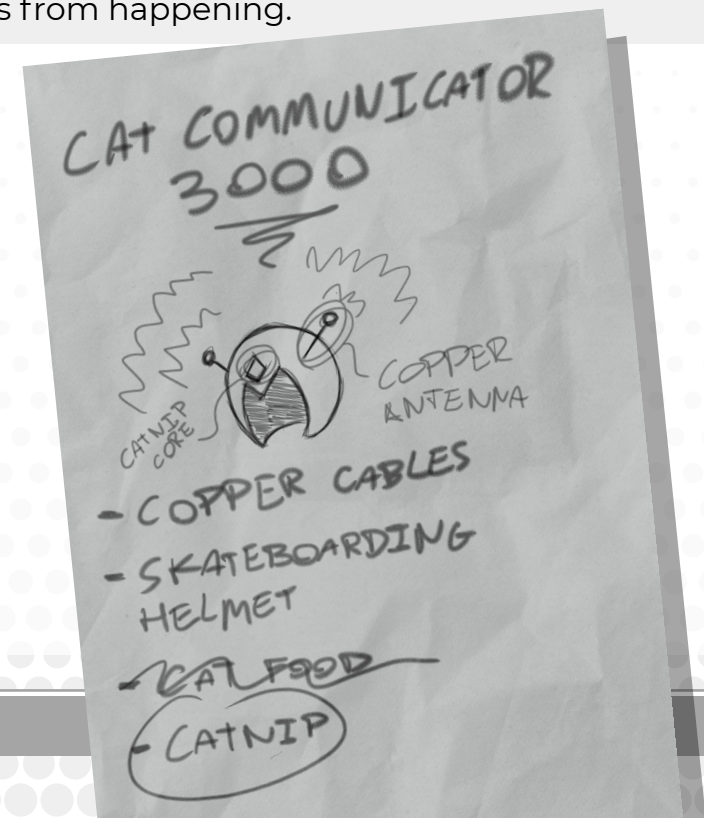 s from happening.
CAt COMMUNICATOR
3000
COPPER
ANTENNA
CATNIP
CORE
- COPPER CABLES
- SKATEBOARDING
HELMET
- CAT FOOD
- CATNIP